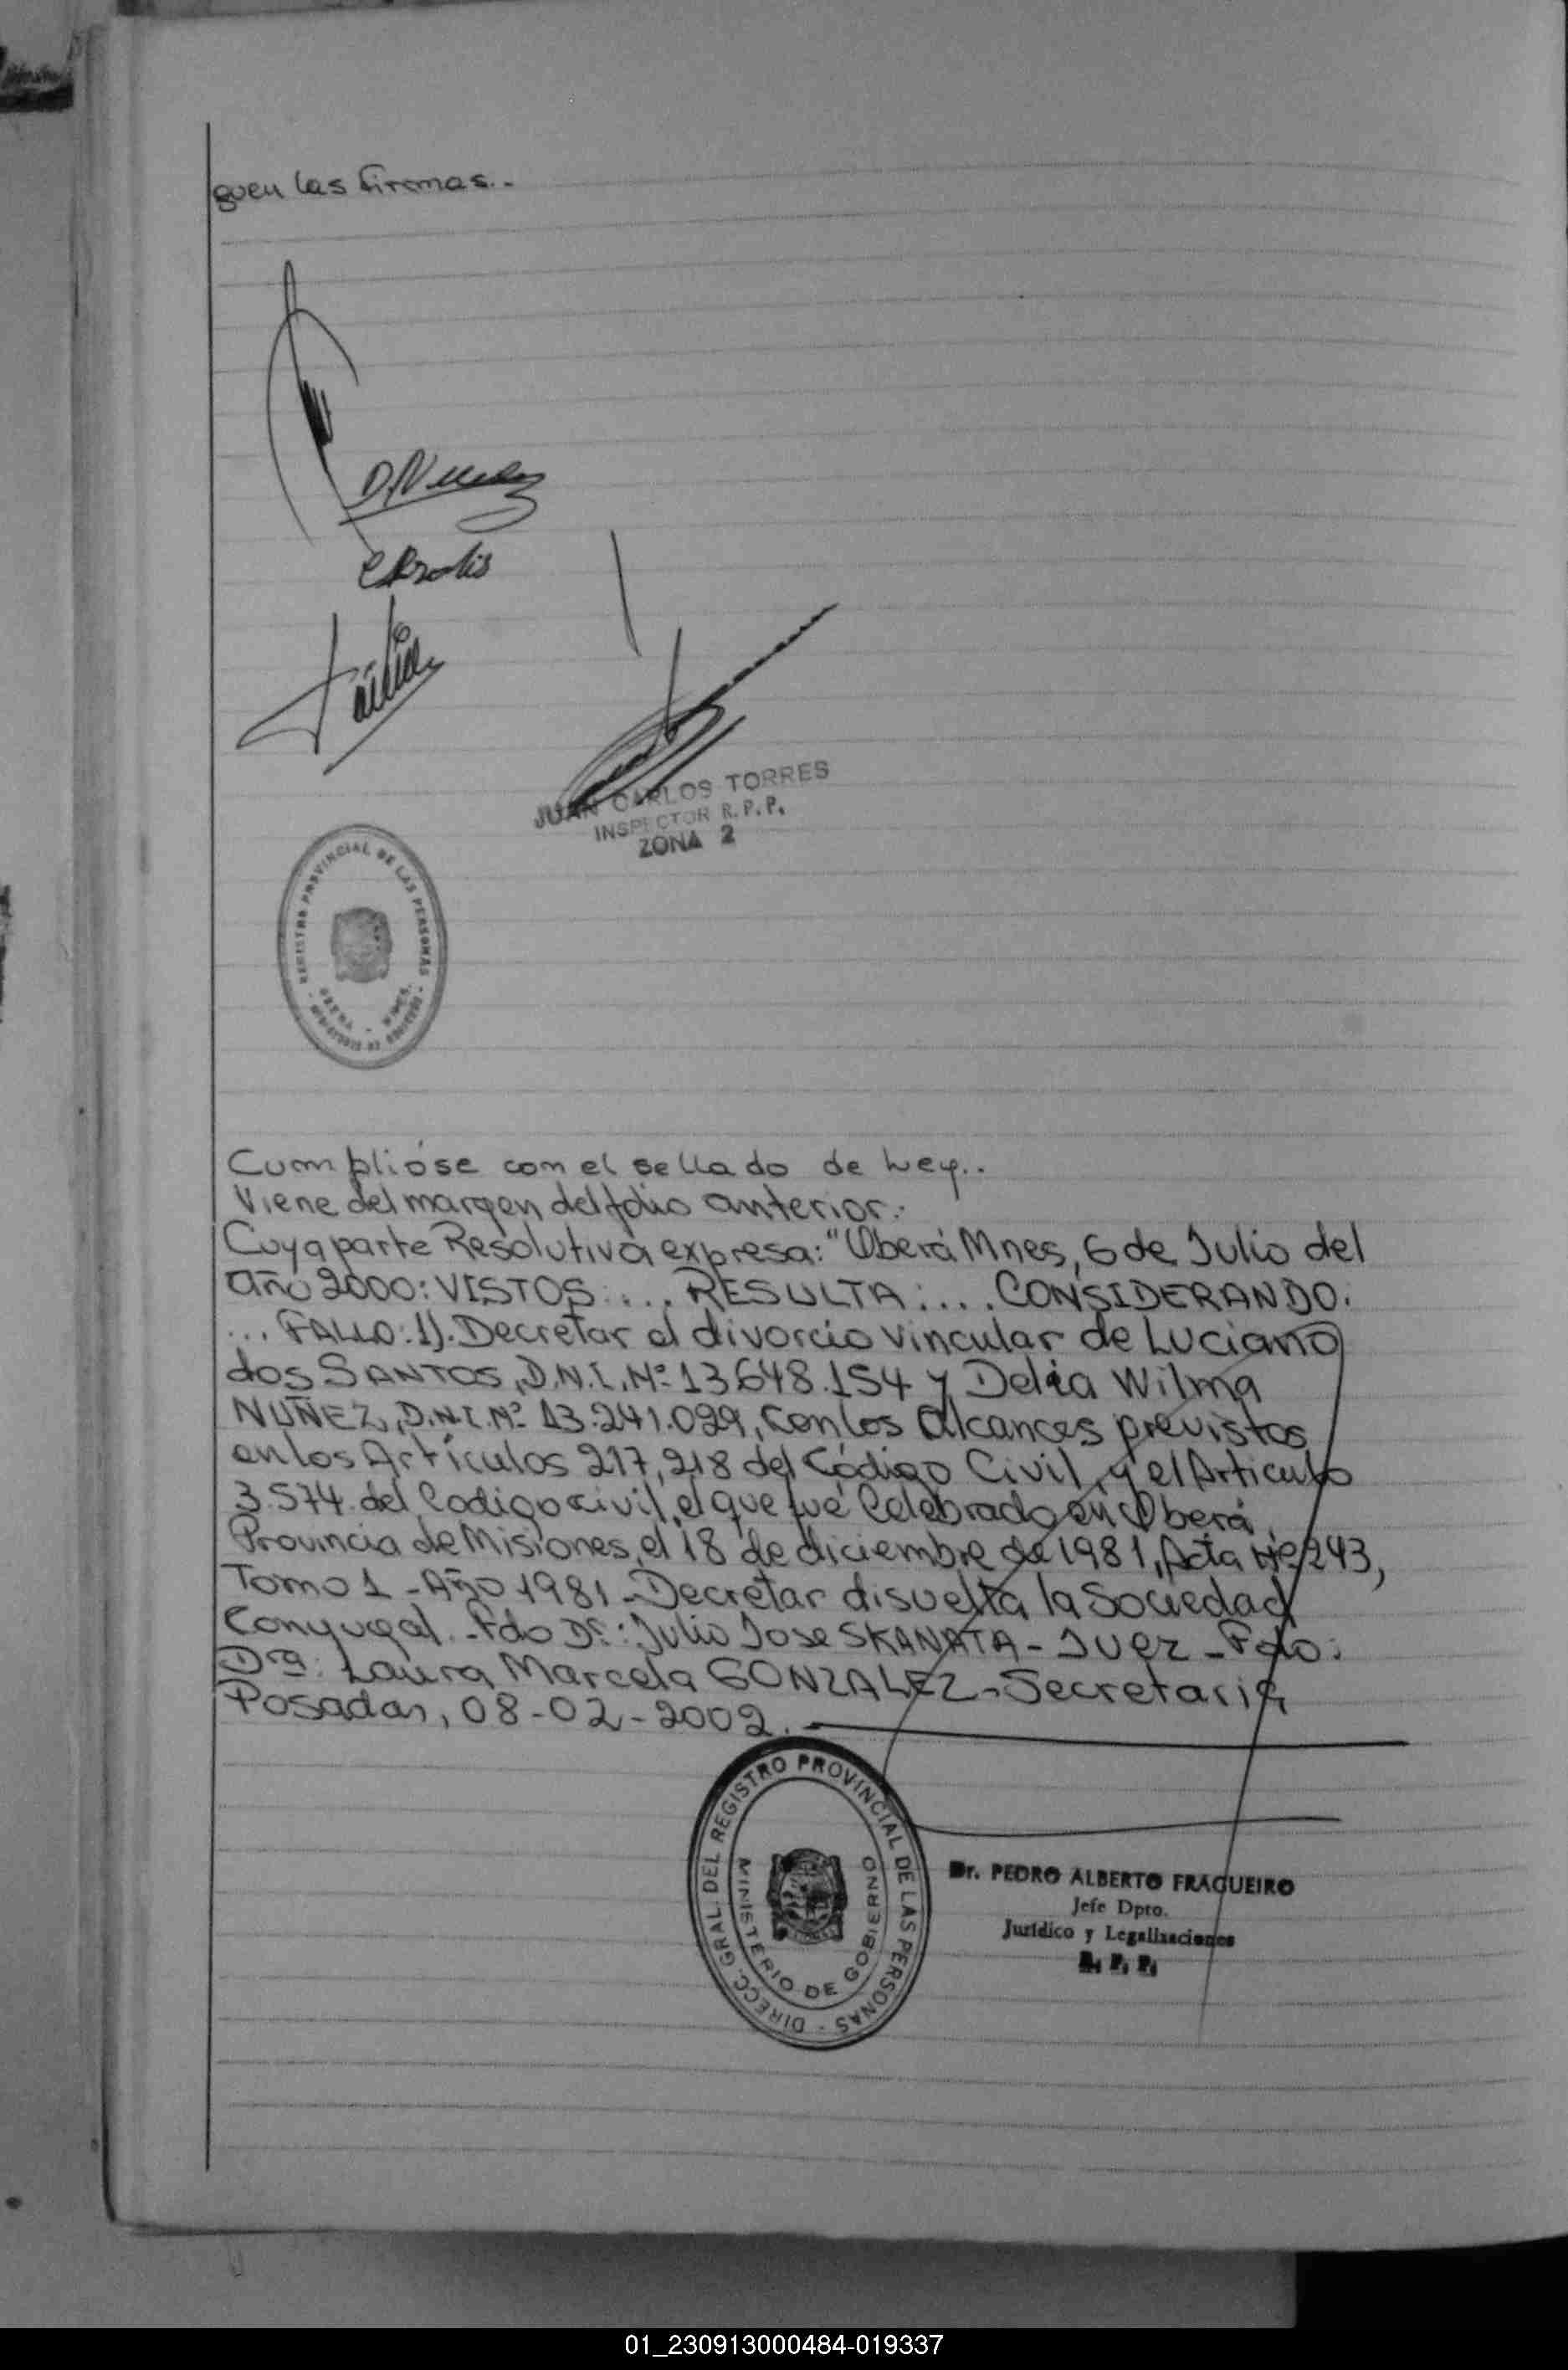 guen las firmas.-
D. Nuñez
JUAN CARLOS TORRES
INSPECTOR R.P.P.
ZONA 2
REGISTRO PROVINCIAL DE LAS PERSONAS
Cumplióse con el sellado de Ley..
Viene del margen del folio anterior:
Cuya parte Resolutiva expresa: "Oberá Mnes, 6 de Julio del
año 2000: VISTOS:... RESULTA:.... CONSIDERANDO:
... FALLO: 1). Decretar el divorcio vincular de Luciano
dos SANTOS, D.N.I. Nº 13.648.154 y Delia Wilma
NUÑEZ, D.N.I. Nº 13.241.029, con los alcances previstos
en los Artículos 217, 218 del Código Civil, y el Articulo
3.574 del Codigo civil, el que fué Celebrado en Oberá,
Provincia de Misiones, el 18 de diciembre de 1981, Acta Nº 243,
Tomo 1 - Año 1981 - Decretar disuelta la Sociedad
Conyugal. - Fdo Dr.: Julio Jose SKANATA - Juez - Fdo:
Dra: Laura Marcela GONZALEZ - Secretaria
Posadas, 08-02-2002. -
DIRECC. GRAL. DEL REGISTRO PROVINCIAL DE LAS PERSONAS -
MINISTERIO DE GOBIERNO
Dr. PEDRO ALBERTO FRAGUEIRO
Jefe Dpto.
Jurídico y Legalizaciones
R. P. P.
01_230913000484-019337